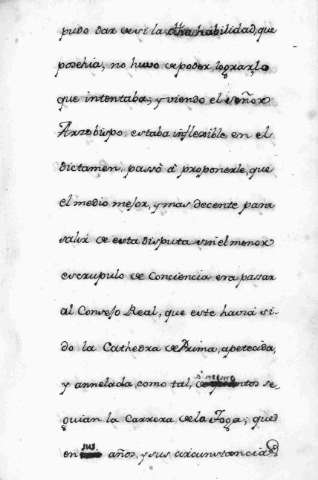 pudo dar de si la dha habilidad, que
posehia, no huvo de poder lograrlo
que intentaba; y viendo el señor
Arzobispo, estaba inflexible en el
dictamen, passò à proponerle, que
el medio mejor, y mas decente para
salir de esta disputa sin el menor
escrupulo de Conciencia era pasar
al Consejo Real, que este havia si-
do la Cathedra de Prima, apetecida,
y annelada, como tal, de se
guian la Carrera de la Toga; que
en sus años, y sus circunstancias